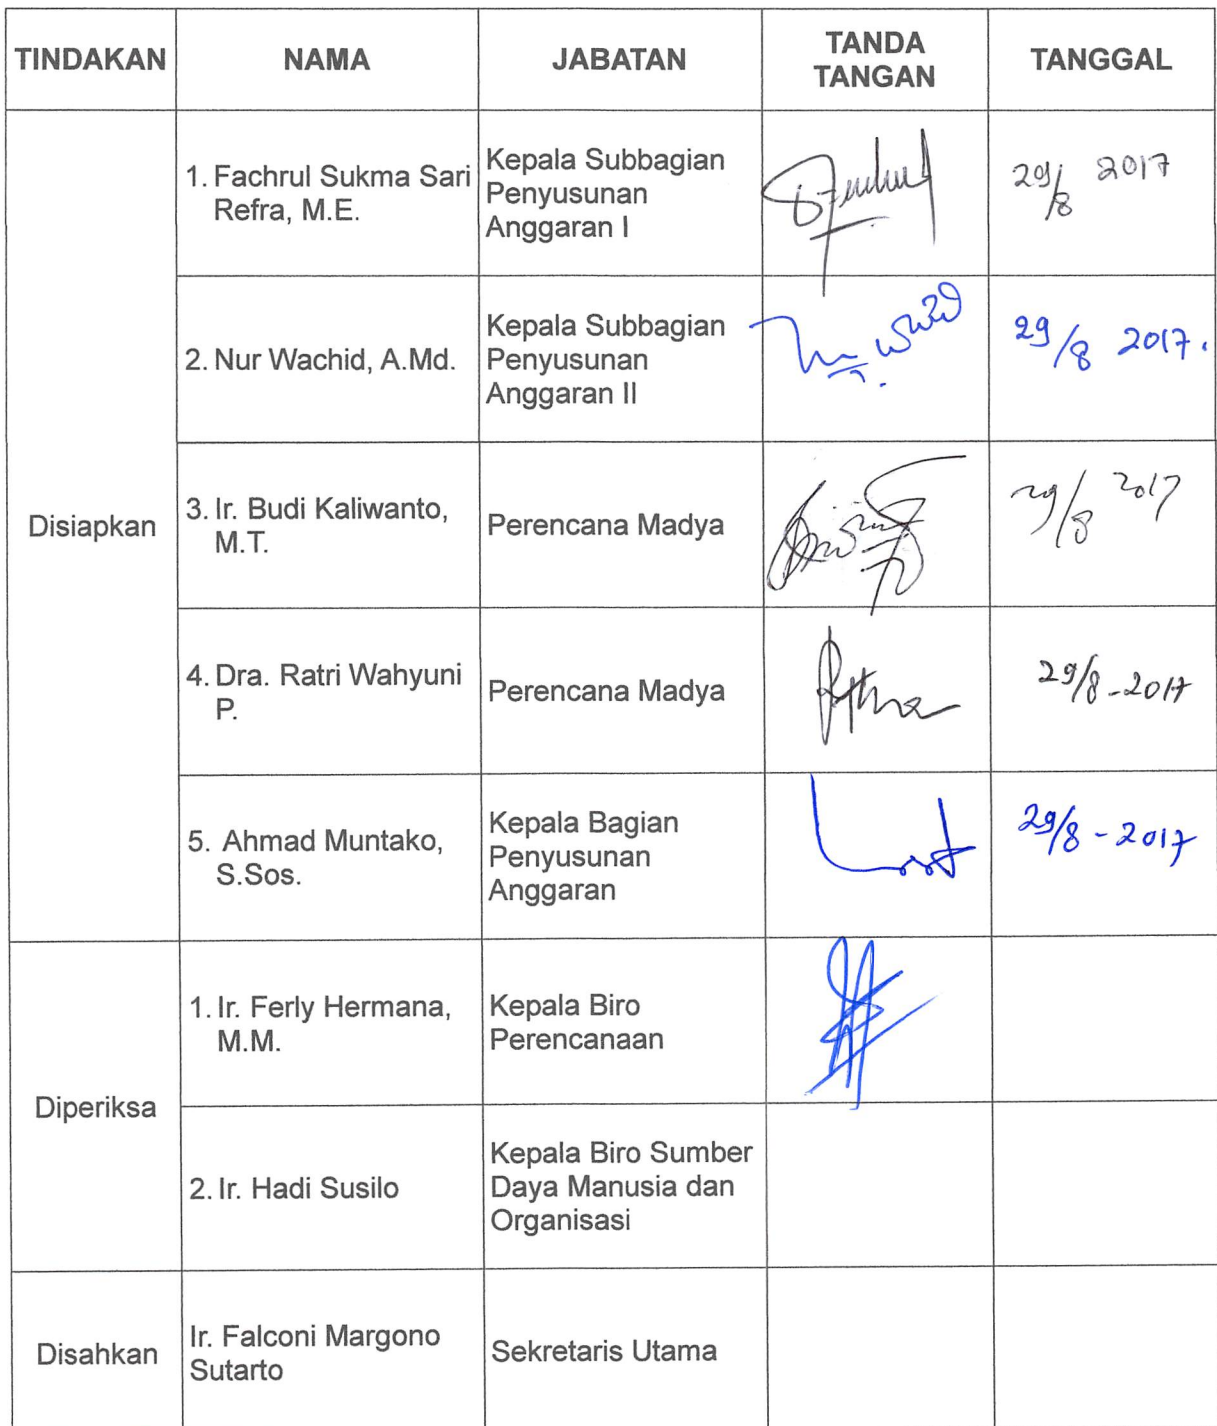 TINDAKAN NAMA JABATAN TANDA TANGAN TANGGAL
Disiapkan
1. Fachrul Sukma Sari
Refra, M.E.
Kepala Subbagian
Penyusunan
Anggaran I
29/8 2017
2. Nur Wachid, A.Md.
Kepala Subbagian
Penyusunan
Anggaran II
29/8 2017.
3. Ir. Budi Kaliwanto,
M.T.
Perencana Madya
29/8 2017
4. Dra. Ratri Wahyuni
P.
Perencana Madya
29/8-2017
5. Ahmad Muntako,
S.Sos.
Kepala Bagian
Penyusunan
Anggaran
29/8-2017
Diperiksa
1. Ir. Ferly Hermana,
M.M.
Kepala Biro
Perencanaan
2. Ir. Hadi Susilo
Kepala Biro Sumber
Daya Manusia dan
Organisasi
Disahkan
Ir. Falconi Margono
Sutarto
Sekretaris Utama